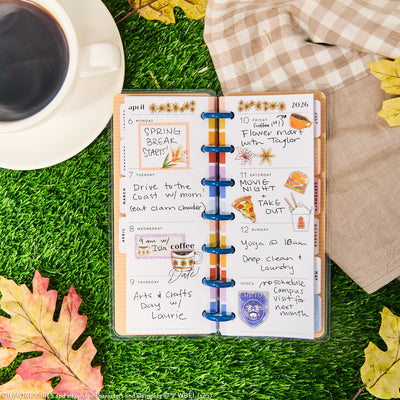 april
6 MONDAY
SPRING
BREAK
STARTS
7 TUESDAY
Drive to the
Coast w/ mom
(eat clam chowder)
8 WEDNESDAY
9 am w/
Isla
coffee
Date!
9 THURSDAY
Arts & Crafts
Day w/
Laurie
MARCH
APRIL
2026
10 FRIDAY
(coffee 1st)
Flower market
with Taylor
11 SATURDAY
MOVIE
NIGHT
+
TAKE
OUT
12 SUNDAY
Yoga @ 10am
Deep clean +
Laundry
notes
→ Schedule
Campus
visit for
next month.
GILMORE GIRLS and all related characters and elements © &